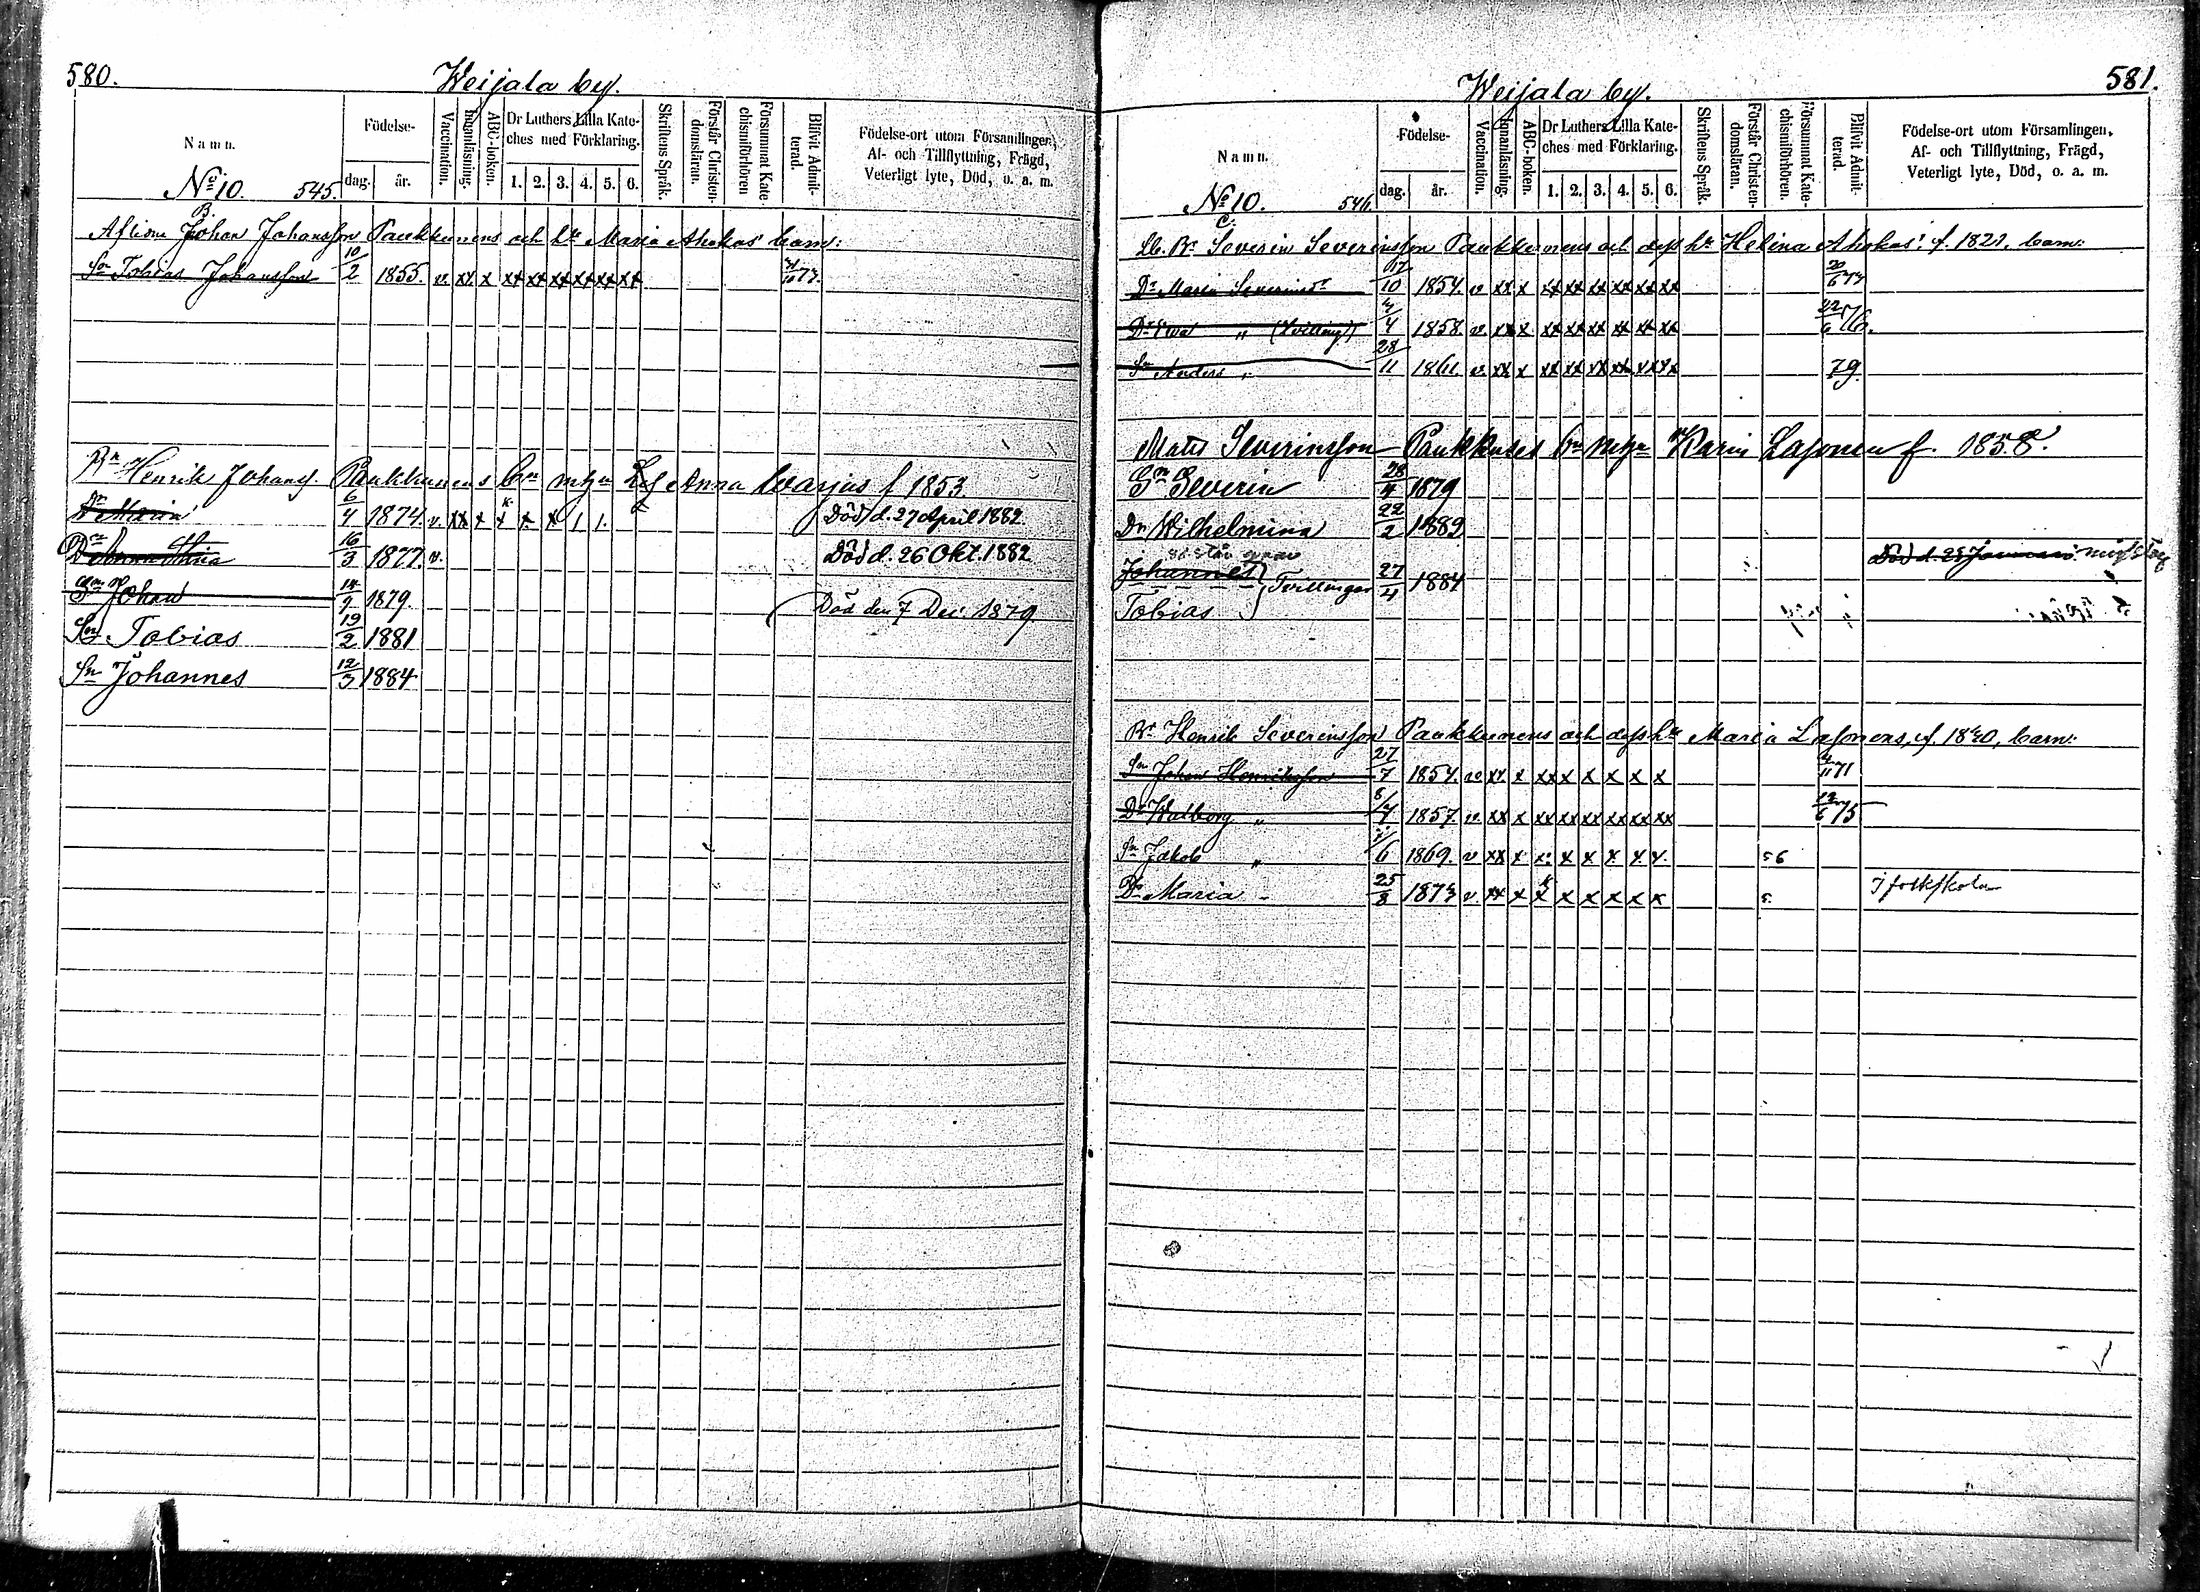 580.
Weijala by.
Namn.
Födelse-
dag.
år.
Vaccination.
Innanläsning.
ABC-boken.
Dr Luthers Lilla Kate-
ches med Förklaring.
1. 2. 3. 4. 5. 6.
Skriftens Språk.
Förstår Christen-
domsläran.
Försummat Kate-
chismiförhören
Blifvit Admit-
terad.
Födelse-ort utom Församlingen,
Af- och Tillflyttning, Frägd,
Veterligt lyte, Död, o. a. m.
No 10. 545.
B.
Aflidne Johan Johansson Paukkunens och hu Maria Ahokas' barn:
Sn Tobias Johansson 10/2 1855. v. xx x xx xx xx xx xx xx 73.
Bn Henrik Johanss. Paukkunens bn m hn Anna Warjus f 1853.
Dr Maria 6/4 1874. v. xx x x x x / /. Död d. 27 April 1882.
Dr Anna Stina 16/3 1877. v. Död d. 26 Okt. 1882
Sn Johan 14/9 1879. Död den 7 Dec. 1879.
Sn Tobias 19/2 1881
Sn Johannes 12/3 1884
581.
Weijala by.
Namn.
Födelse-
dag.
år.
Vaccination.
Innanläsning.
ABC-boken.
Dr Luthers Lilla Kate-
ches med Förklaring.
1. 2. 3. 4. 5. 6.
Skriftens Språk.
Förstår Christen-
domsläran.
Försummat Kate-
chismiförhören.
Blifvit Admit-
terad.
Födelse-ort utom Församlingen,
Af- och Tillflyttning, Frägd,
Veterligt lyte, Död, o. a. m.
No 10. 546.
C.
Lb. Bn Severin Severinsson Paukkunens och dess hu Helena Ahokas', f. 1821, barn:
Dr Maria Severinsdr 17/10 1854. v xx x xx xx xx xx xx xx 20/6 73
Dr Eva " (Tvilling) 4/4 1858. v. xx x xx xx xx xx xx xx 22/6 76.
Sn Anders " 28/11 1861. v. xx x xx xx xx xx xx xx 79.
Mats Severinsson Paukkuses bn m hn Karin Lasonen f. 1858.
Sn Severin 28/4 1879
Dr Wilhelmina 22/2 1882
Johannes } Tvillingar 27/4 1884 Död d. 25 Januari
Tobias
Bn Henrik Severinsson Paukkunens och dess hu Maria Lasonens, f. 1830, barn:
Sn Johan Henriksson 27/7 1854. v xx x xx x x x x x 71
Dr Walborg " 8/4 1857. v. xx x xx xx xx xx xx xx 12/6 75
Sn Jakob " 6 1869. v xx x x x x x x x. 56
Dr Maria " 25/8 1873 v. xx x x x x x x x 5. I folkskola